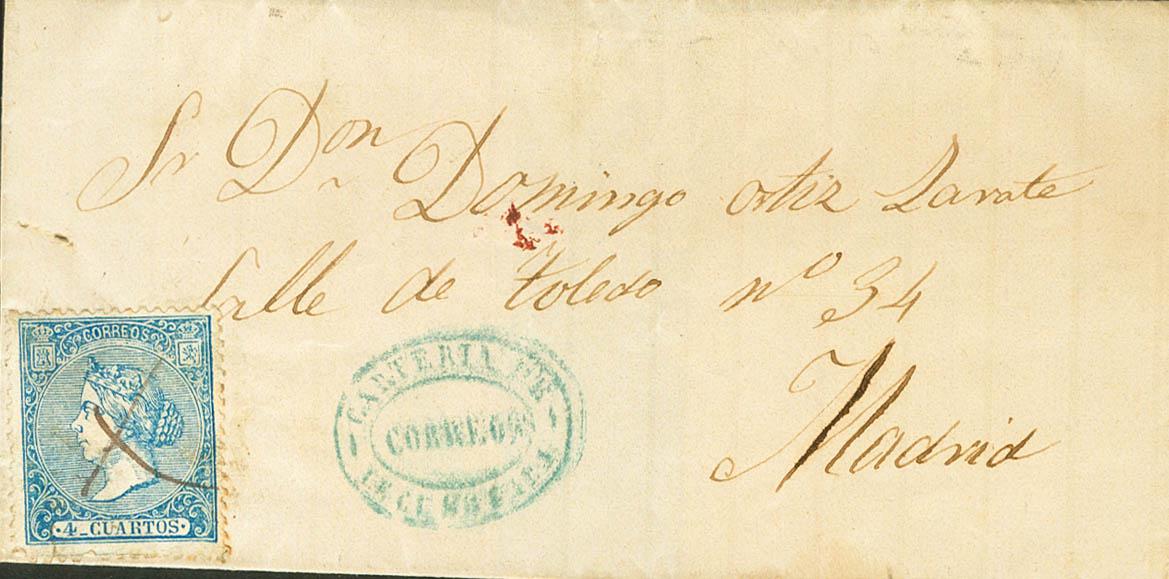 Sr Don Domingo ortiz Zarate
Calle de toledo nº 34
Madrid
CORREOS
4_CUARTOS
CARTERIA DE
CORREOS